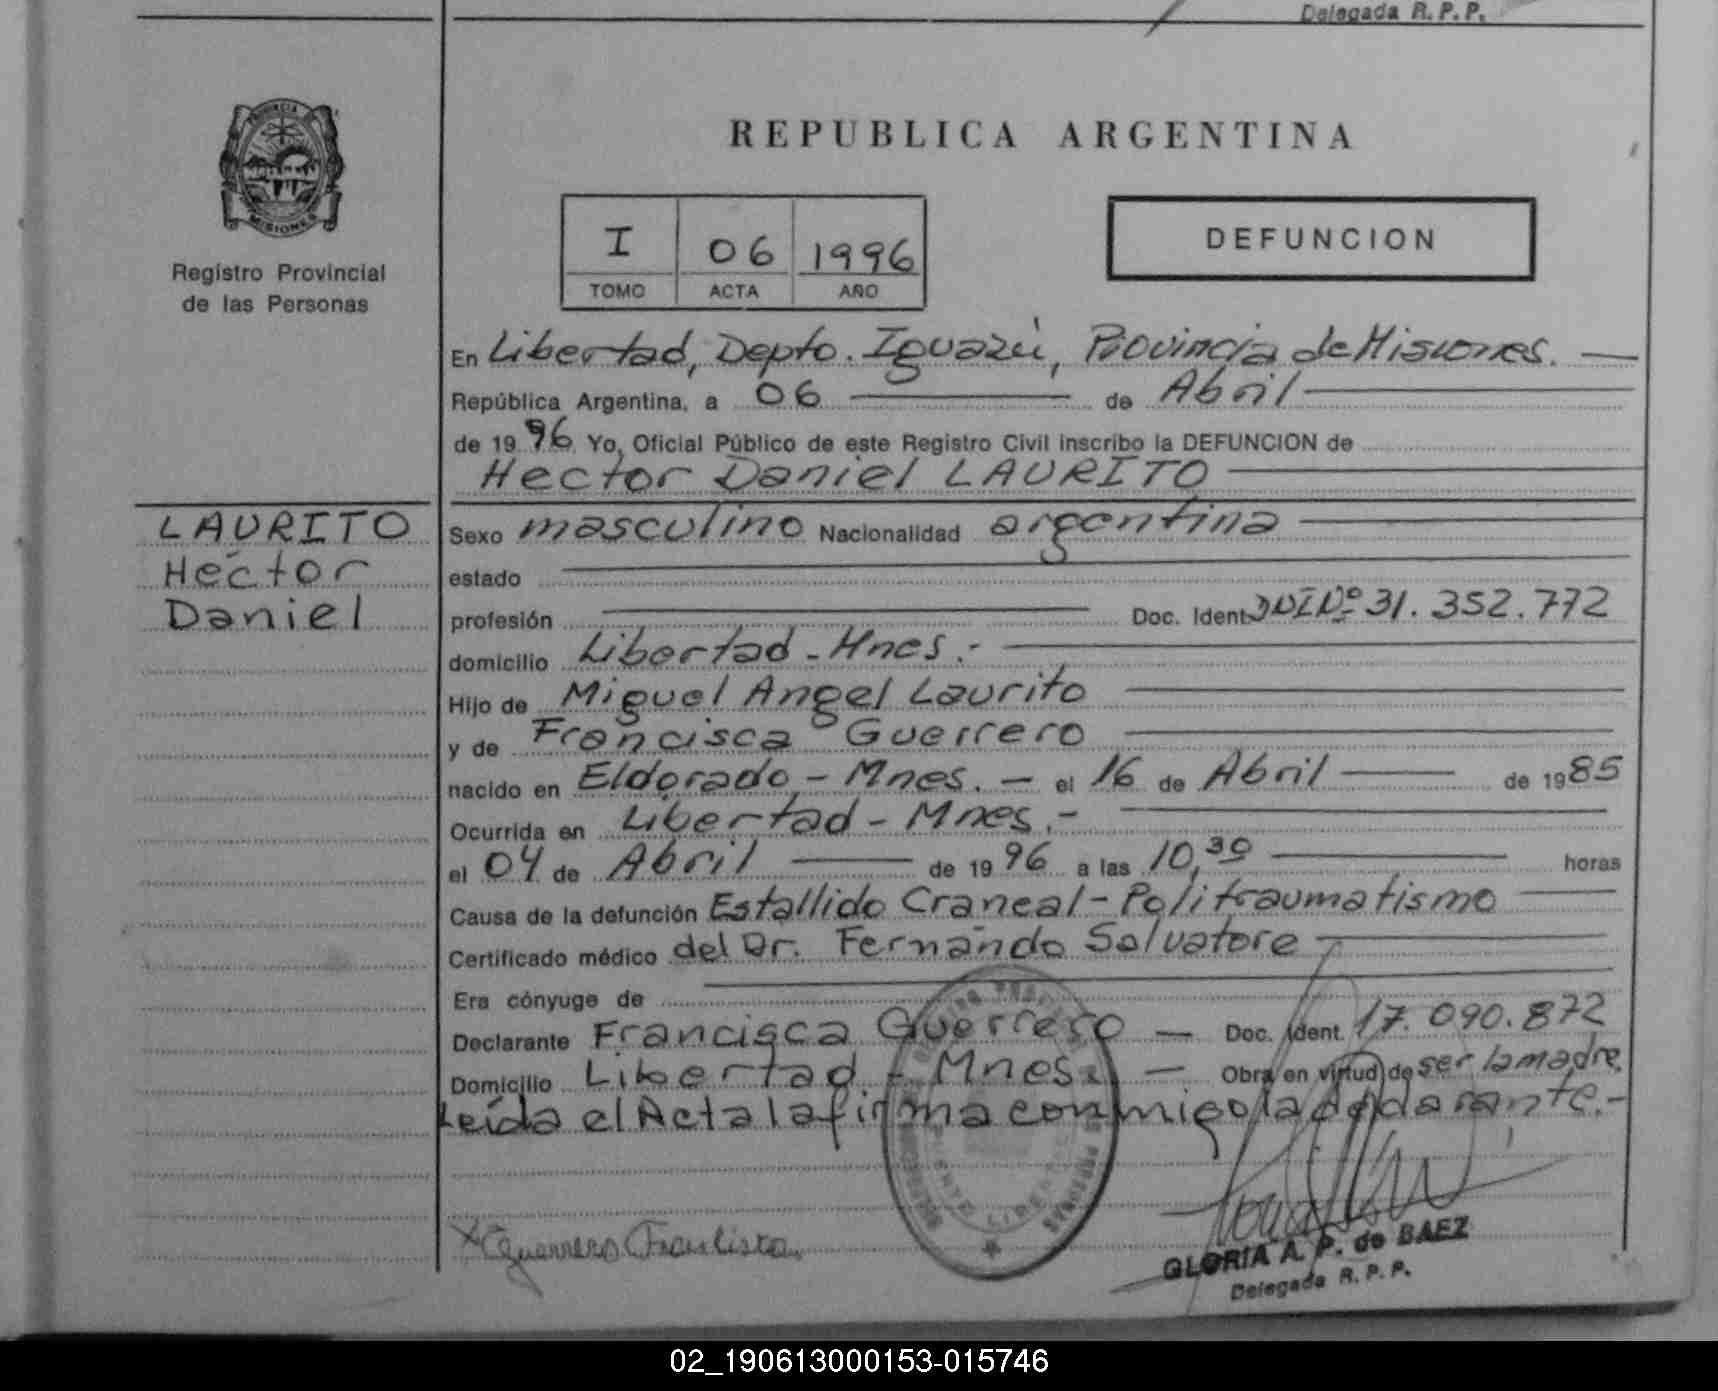 Delegada R. P. P.
PROVINCIA
MISIONES
Registro Provincial
de las Personas
REPUBLICA ARGENTINA
I 06 1996
TOMO ACTA AÑO
DEFUNCION
En Libertad, Depto. Iguazú, Provincia de Misiones. —
República Argentina, a 06 — de Abril —
de 1996 Yo, Oficial Público de este Registro Civil inscribo la DEFUNCION de
Hector Daniel LAURITO —
LAURITO
Héctor
Daniel
Sexo masculino Nacionalidad argentina —
estado —
profesión — Doc. Ident. DNI Nº 31.352.772
domicilio Libertad - Mnes.- —
Hijo de Miguel Angel Laurito —
y de Francisca Guerrero —
nacido en Eldorado - Mnes. — el 16 de Abril — de 1985
Ocurrida en Libertad - Mnes.- —
el 04 de Abril — de 1996 a las 10,30 — horas
Causa de la defunción Estallido Craneal - Politraumatismo —
Certificado médico del Dr. Fernando Salvatore —
Era cónyuge de —
Declarante Francisca Guerrero — Doc. Ident. 17.090.872
Domicilio Libertad - Mnes. — Obra en virtud de ser la madre.
Leída el Acta la firma conmigo la declarante.-
X Guerrero
GLORIA A. P. de BAEZ
Delegada R. P. P.
02_190613000153-015746